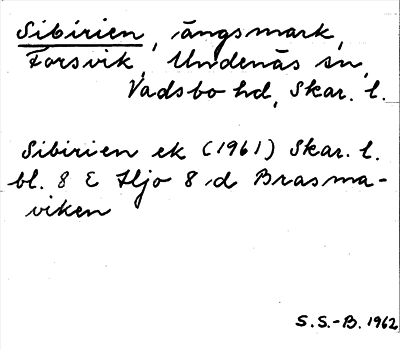 Sibirien, ängsmark,
Forsvik, Undenäs sn,
Vadsbo hd, Skar. l.
Sibirien ek (1961) Skar. l.
bl. 8 E Hjo 8 d Brasma-
viken
S.S.-B. 1962